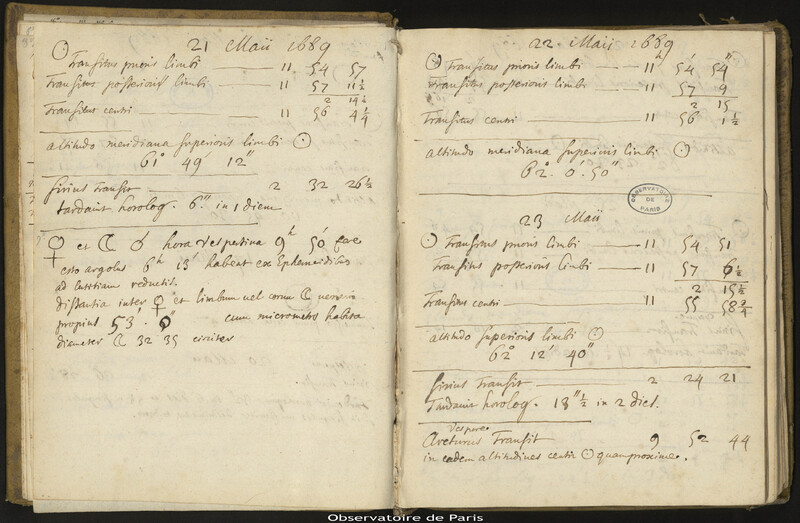 21 Maii 1689
☉ Transitus prioris limbi — 11 54 57
Transitus posterioris limbi — 11 57 11 1/2
2 14 1/2
Transitus centri — 11 56 4 1/4
altitudo meridiana superioris limbi ☉
61° 49 12"
Sirius Transit — 2 32 26 1/2
tardavit horolog. 6." in 1 diem
♀ et ☾ ☌ hora vespertina 9h 50'
6h 13' habent ex Ephemeridibus
ad reductis.
distantia inter ♀ et limbum vel cornu ☾
propius 53'. 0" cum micrometro habita
diameter ☾ 32 35 circiter
22 Maii 1689
☉ Transitus prioris limbi — 11h 54' 54"
Transitus posterioris limbi — 11 57 9
2 15
Transitus centri — 11 56 1 1/2
altitudo meridiana superioris limbi ☉
62°. 0'. 50"
OBSERVATOIRE DE PARIS
23 Maii
☉ Transitus prioris limbi — 11 54 51
Transitus posterioris limbi — 11 57 6 1/2
2 15 1/2
Transitus centri — 11 55 58 3/4
altitudo superioris limbi ☉
62° 12' 40"
Sirius Transit — 2 24 21
Tardavit horolog. 13" 1/2 in 2 dies.
Vespere
Arcturus Transit 9 52 44
in eadem altitudines centri ☉ quamproxime.
Observatoire de Paris